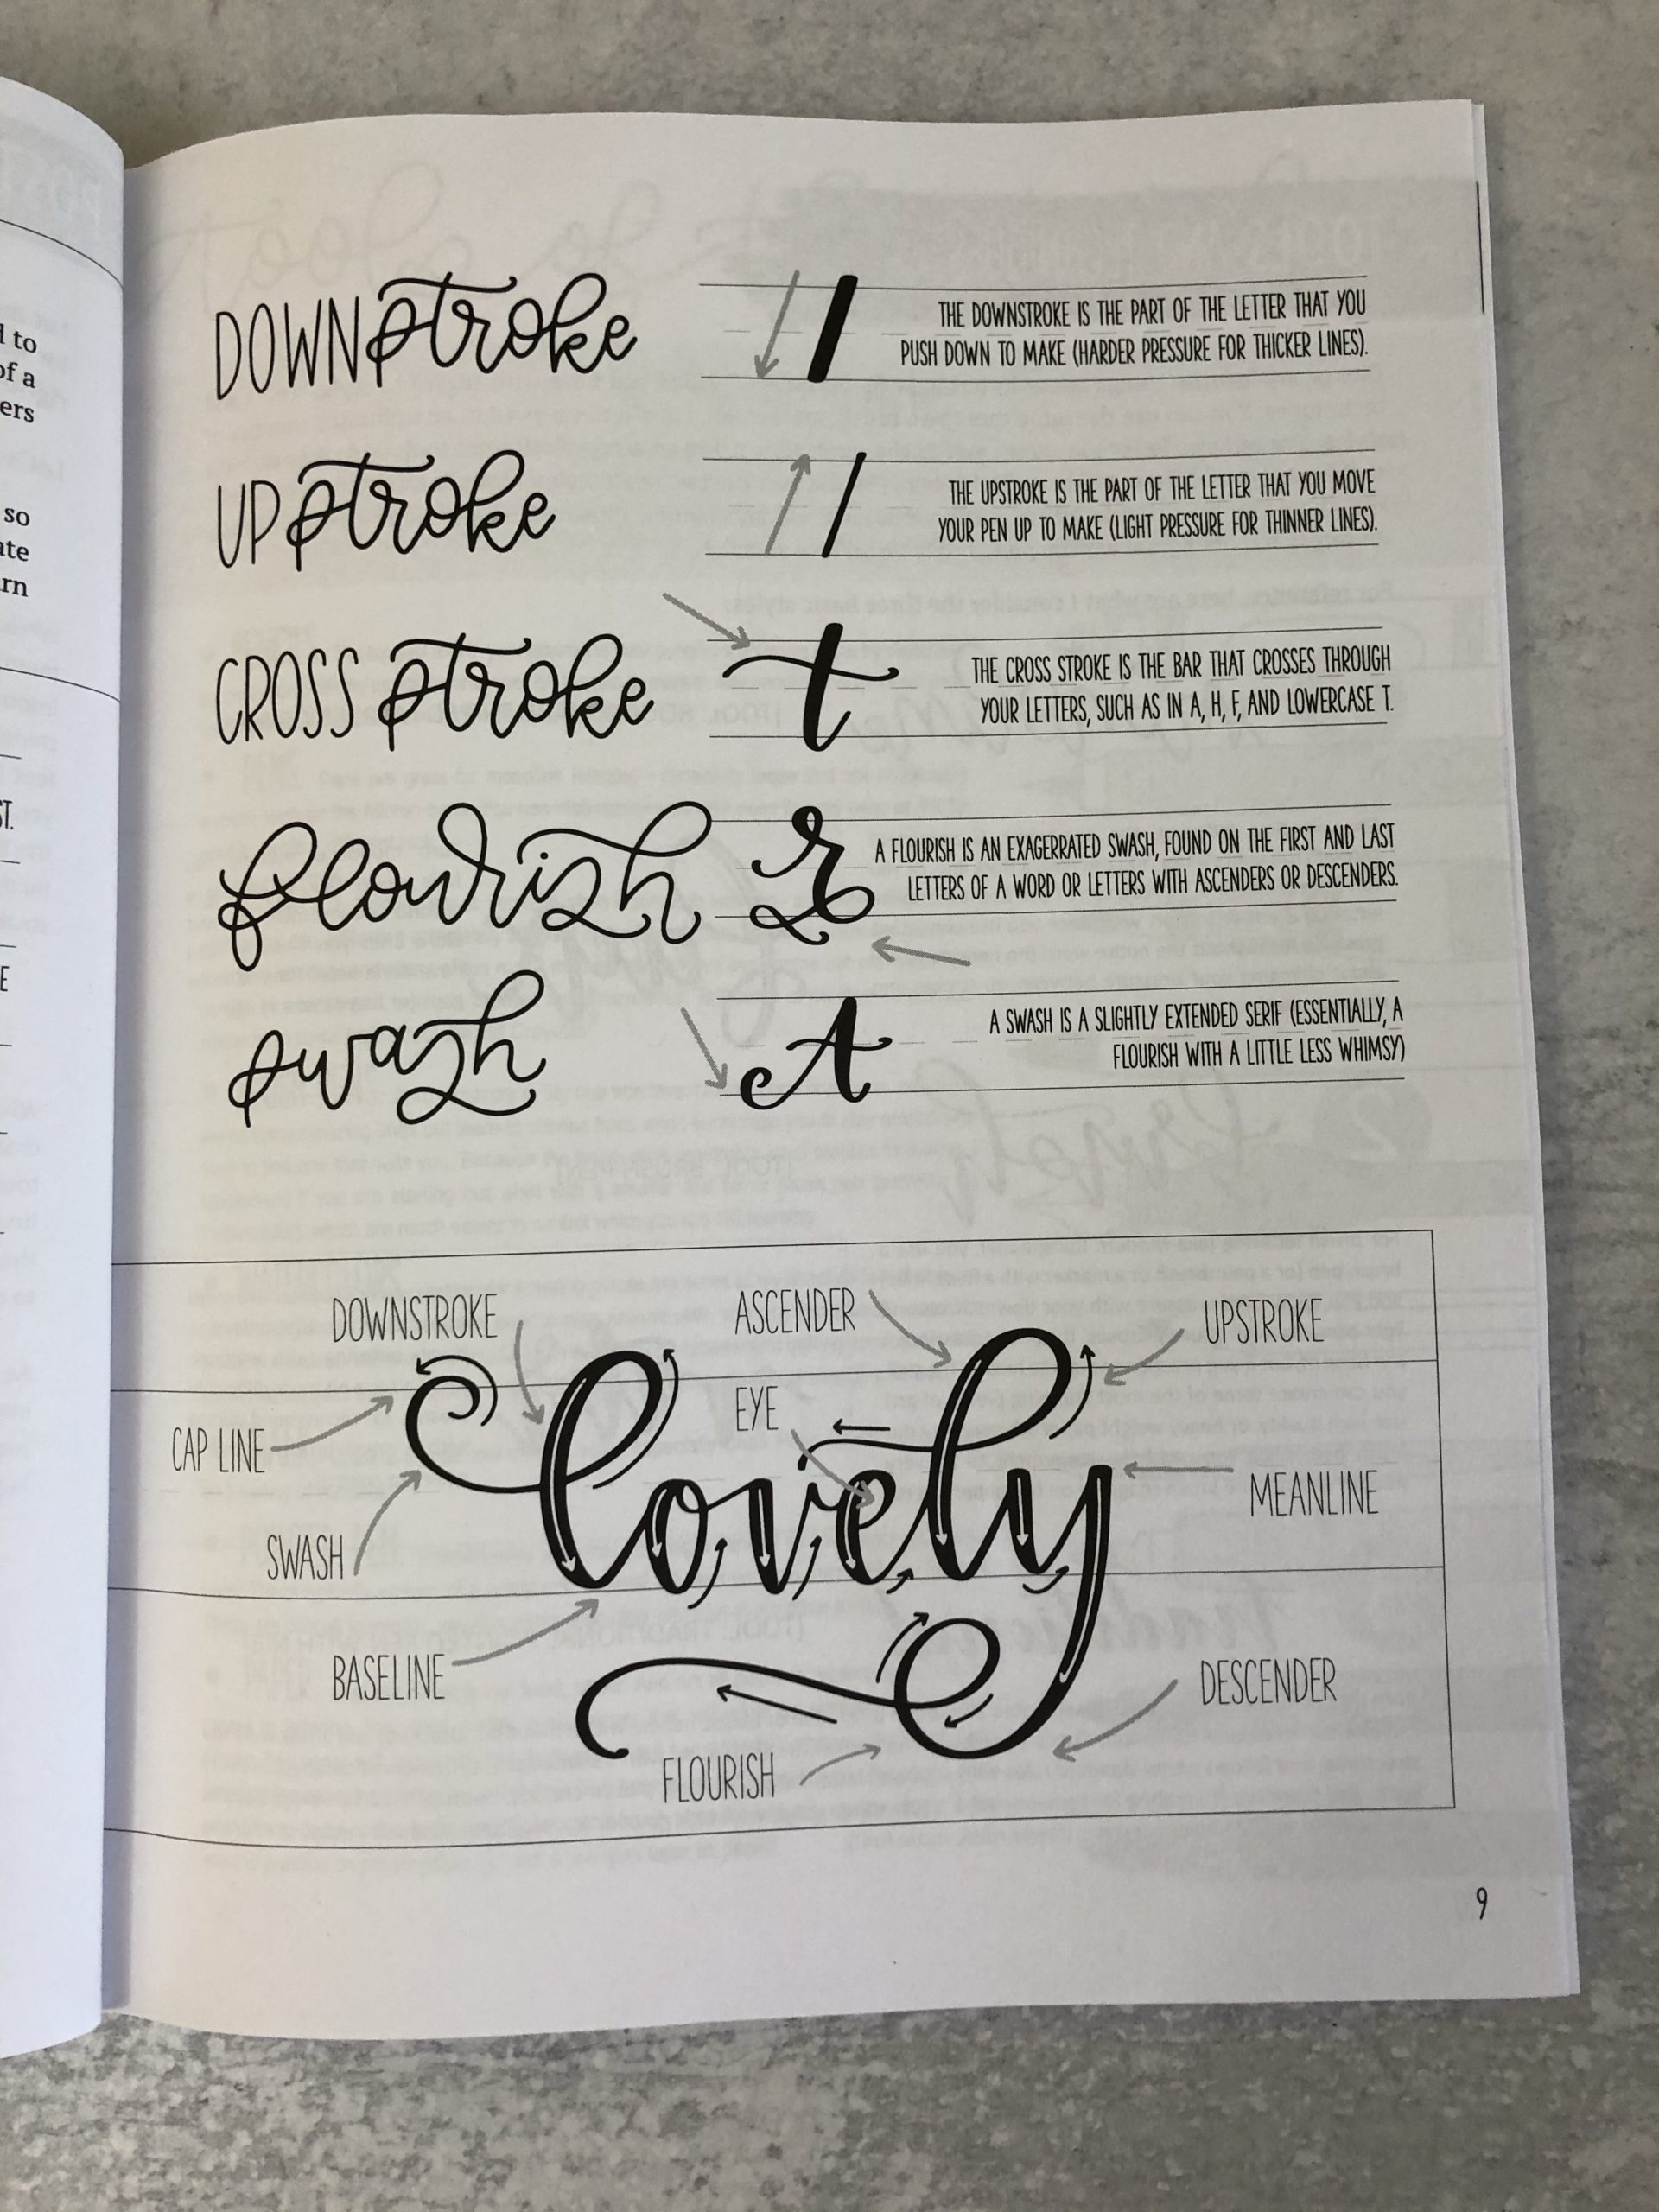 d to
of a
ers
so
ate
rn
ST.
E
DOWNstroke
THE DOWNSTROKE IS THE PART OF THE LETTER THAT YOU
PUSH DOWN TO MAKE (HARDER PRESSURE FOR THICKER LINES).
UPstroke
THE UPSTROKE IS THE PART OF THE LETTER THAT YOU MOVE
YOUR PEN UP TO MAKE (LIGHT PRESSURE FOR THINNER LINES).
CROSS stroke
t
THE CROSS STROKE IS THE BAR THAT CROSSES THROUGH
YOUR LETTERS, SUCH AS IN A, H, F, AND LOWERCASE T.
flourish
A FLOURISH IS AN EXAGERRATED SWASH, FOUND ON THE FIRST AND LAST
LETTERS OF A WORD OR LETTERS WITH ASCENDERS OR DESCENDERS.
swash
A
A SWASH IS A SLIGHTLY EXTENDED SERIF (ESSENTIALLY, A
FLOURISH WITH A LITTLE LESS WHIMSY)
DOWNSTROKE
ASCENDER
UPSTROKE
EYE
CAP LINE
lovely
MEANLINE
SWASH
BASELINE
DESCENDER
FLOURISH
9